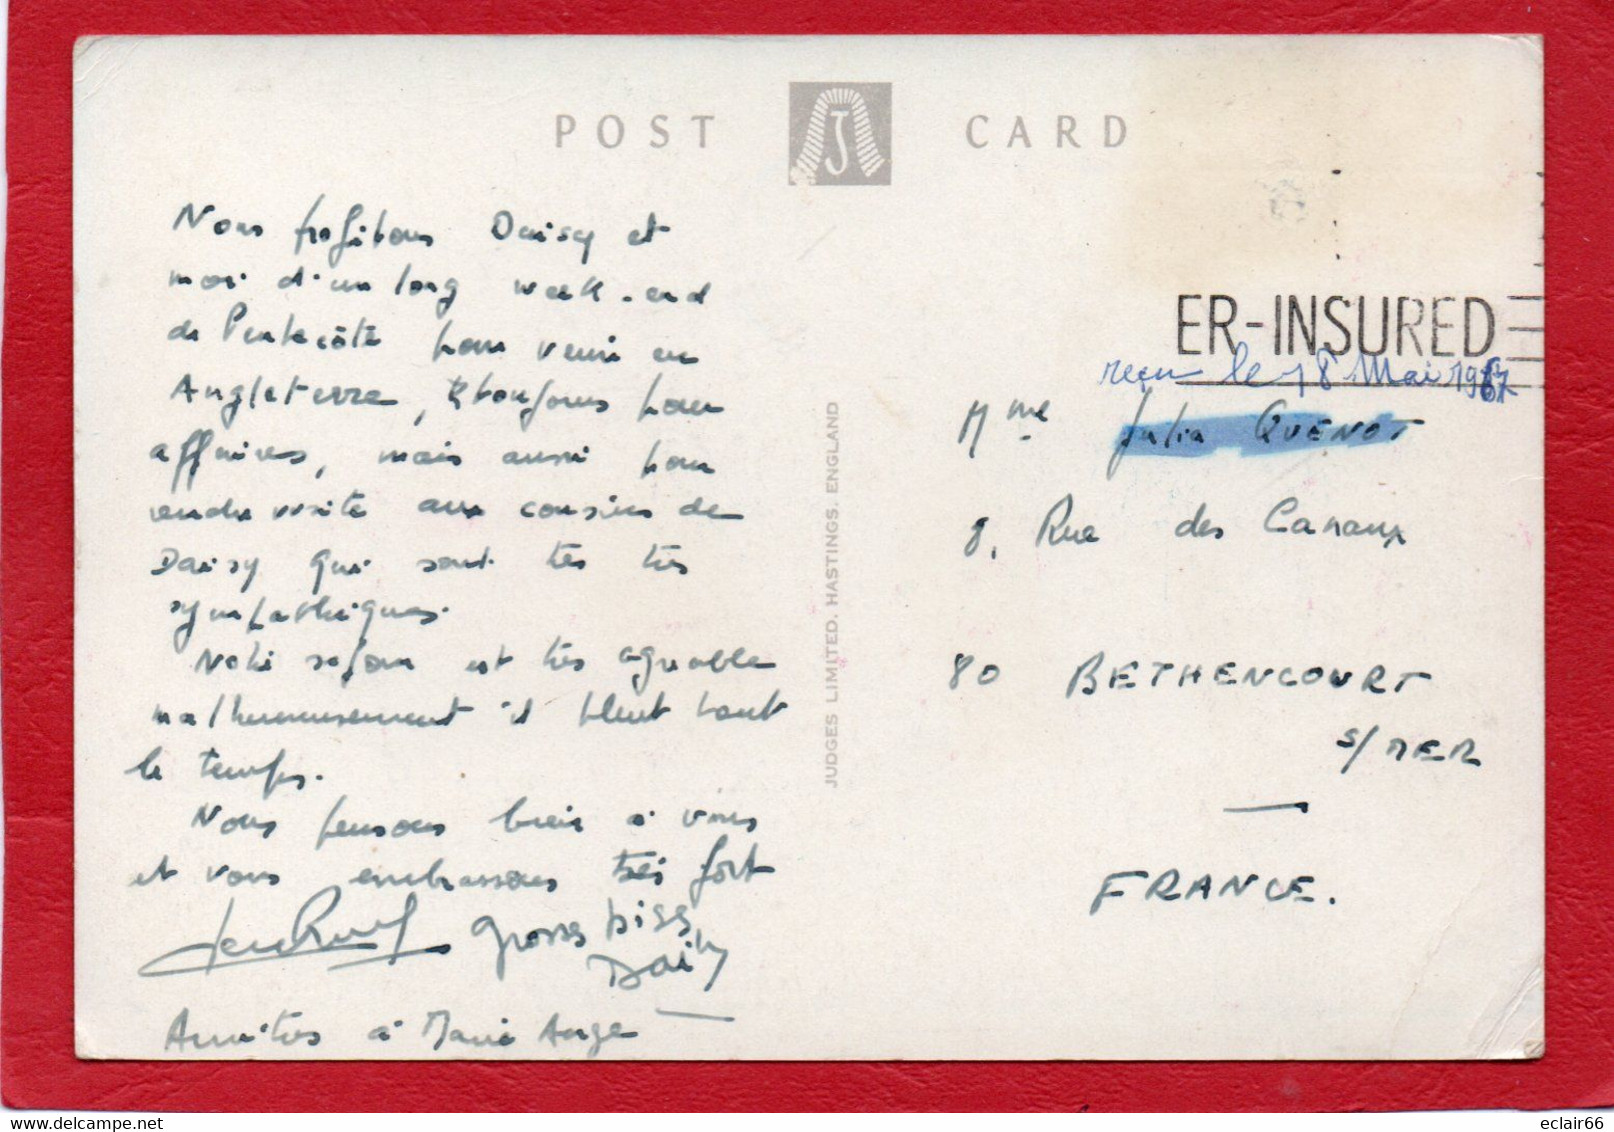 POST CARD
J
Nous profitons Daisy et
moi d'un long week-end
de Pentecôte pour venir en
Angleterre, toujours pour
affaires, mais aussi pour
rendre visite aux cousins de
Daisy qui sont très très
sympathiques.
Notre séjour est très agréable
malheureusement il pleut tout
le temps.
Nous pensons bien à vous
et vous embrassons très fort
grosses bises
Daisy
Amitiés à Marie Ange
JUDGES LIMITED. HASTINGS. ENGLAND
ER-INSURED
reçu le 18 Mai 1967
Mme Julia QUENOT
8, Rue des Canaux
80 BETHENCOURT
s/ MER
FRANCE.
eclair66